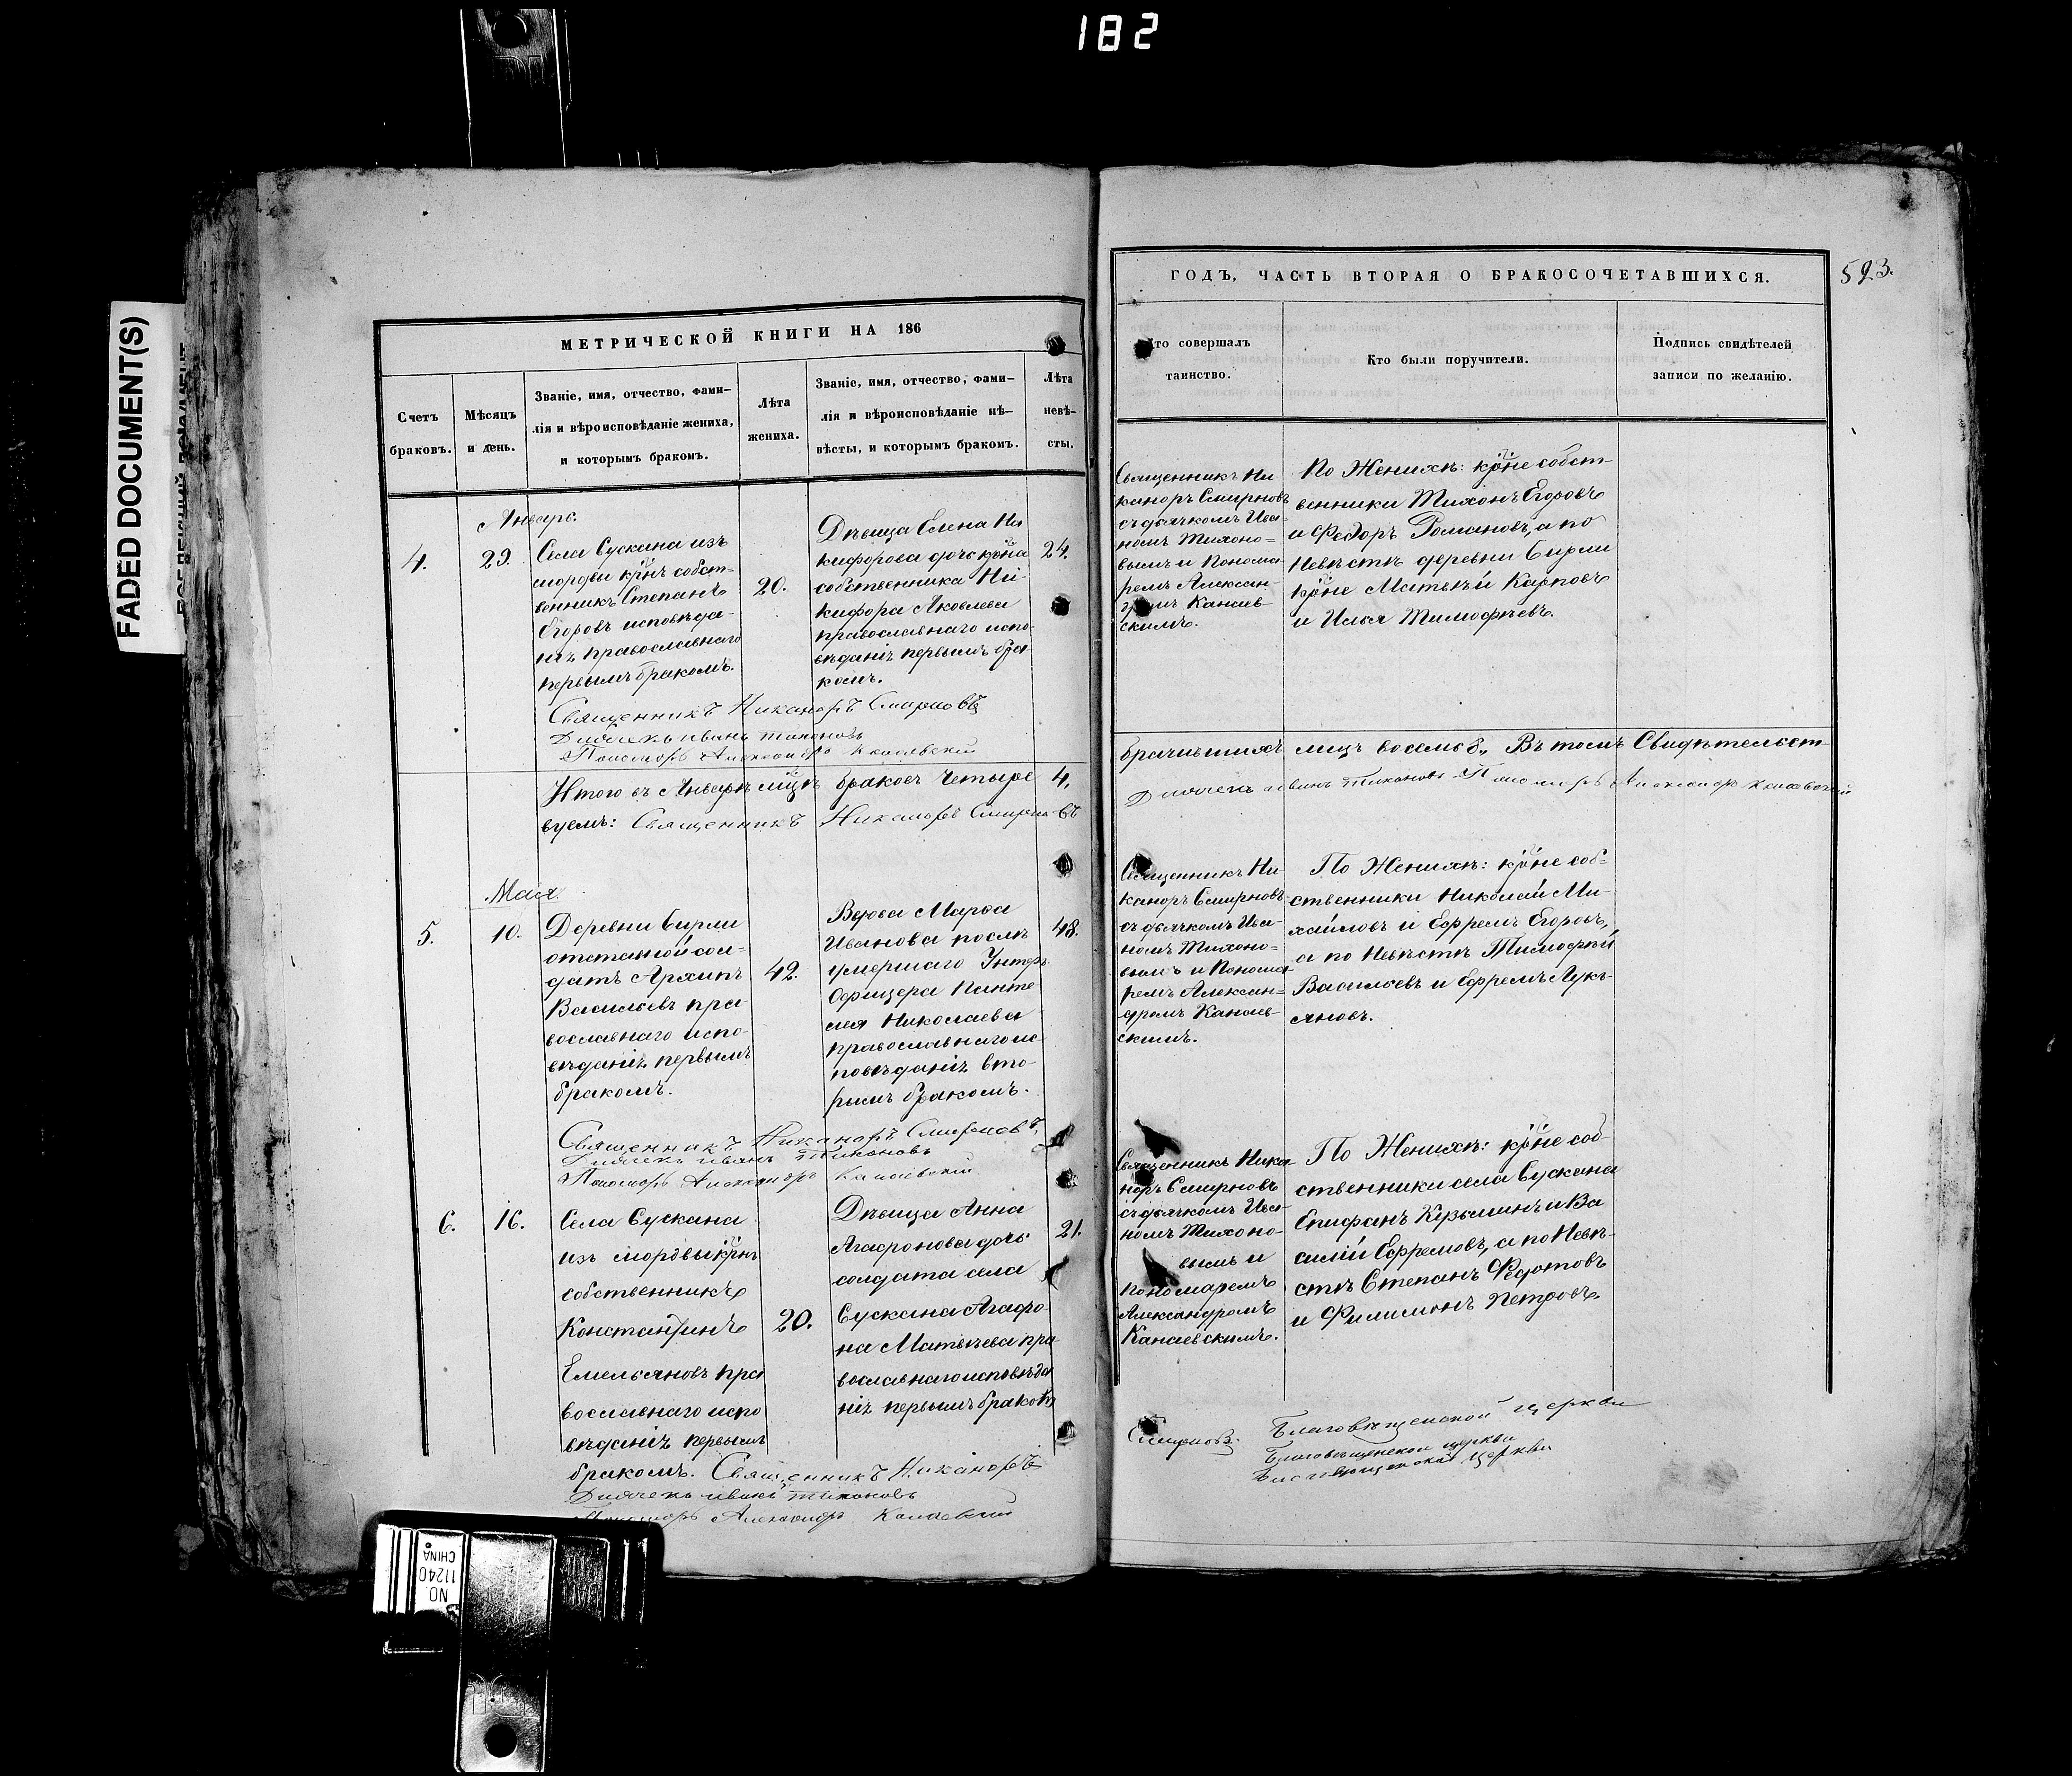 182
FADED DOCUMENT(S)
МЕТРИЧЕСКОЙ КНИГИ НА 186
Счетъ браковъ.
Мѣсяцъ и день.
Званіе, имя, отчество, фами-
лія и вѣроисповѣданіе жениха,
и которымъ бракомъ.
Лѣта
жениха.
Званіе, имя, отчество, фами-
лія и вѣроисповѣданіе нѣ-
вѣсты, и которымъ бракомъ.
Лѣта
невѣ-
сты.
Январь.
4.
29.
Села Сускана изъ
мордвы крнъ собст-
венникъ Степанъ
Егоровъ исповѣда-
нія православнаго
первымъ бракомъ.
20.
Дѣвица Елена Ни
кифорова дочь крна
собственника Ни-
кифора Яковлева
православнаго испо-
вѣданія первымъ бра-
комъ.
24.
Священникъ Никаноръ Смирновъ
Дьячекъ иванъ тихоновъ
Пономарь Александръ Канаевскій
Итого въ Январѣ мцѣ браковъ четыре 4,
вуемъ: Священникъ Никаноръ Смирновъ
Мая
5.
10.
Деревни Бирли
отставной сол-
датъ Архипъ
Васильевъ пра
вославнаго испо-
вѣданія первымъ
бракомъ.
42.
Вдова Марѳа
Иванова послѣ
умершаго Унтеръ
Офицера Панте
лея Николаева
православнаго ис-
повѣданія вто-
рымъ бракомъ.
48.
Священникъ Никаноръ Смирновъ,
Дьячекъ иванъ тихоновъ
Пономарь Александръ Канаевскій
6.
16.
Села Сускана
изъ мордвы крнъ
собственникъ
Константинъ
Емельяновъ пра
вославнаго испо
вѣданія первымъ
бракомъ. Священникъ Никаноръ
20.
Дѣвица Анна
Агафонова дочь
солдата села
Сускана Агафо-
на Матвѣева пра
вославнаго исповѣда
нія первымъ бракомъ
21.
Дьячекъ иванъ тихоновъ
Пономарь Александръ Канаевскій
NO. 11240
CHINA
ГОДЪ, ЧАСТЬ ВТОРАЯ О БРАКОСОЧЕТАВШИХСЯ.
523.
Кто совершалъ
таинство.
Кто были поручители.
Подпись свидѣтелей
записи по желанію.
Священникъ Ни
каноръ Смирновъ
съ дьячкомъ Ива-
номъ Тихоно-
вымъ и Понома
ремъ Алексан-
дромъ Канаев-
скимъ.
По Женихѣ: крне собст-
венники Тихонъ Егоровъ
и Федоръ Романовъ, а по
Невѣстѣ деревни Бирли
крне Матвѣй Карповъ
и Илья Тимофѣевъ.
брачившихся лицъ восемь 8, Въ томъ Свидѣтельст-
Дьячекъ иванъ тихоновъ Пономарь Александръ Канаевскій
Священникъ Ни
каноръ Смирновъ
съ дьячкомъ Ива-
номъ Тихоно-
вымъ и Понома
ремъ Алексан-
дромъ Канаев-
скимъ.
По Женихѣ: крне соб-
ственники Николай Ми-
хайловъ и Ефремъ Егоровъ,
а по Невѣстѣ Тимофѣй
Васильевъ и Ефремъ Лукь-
яновъ.
Священникъ Ника
норъ Смирновъ
съ дьячкомъ Ива-
номъ Тихоно-
вымъ и
пономаремъ
Александромъ
Канаевскимъ.
По Женихѣ: крне соб-
ственники села Сускана
Епифанъ Кузьминъ и Ва
силій Ефремовъ, а по Невѣ-
стѣ Степанъ Федотовъ
и Филимонъ Петровъ.
Смирновъ. Благовѣщенской церкви
Благовѣщенской церкви
Благовѣщенской церкви